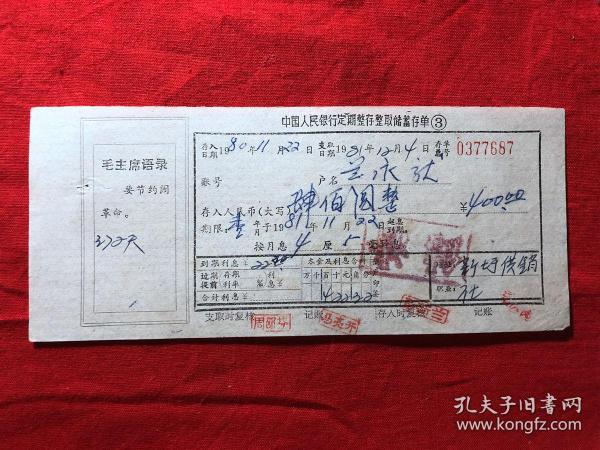 中国人民银行定期整存整取储蓄存单③
存入日期1980年11月22日 支取日期1981年12月4日 存单号码0377687
毛主席语录
要节约闹
革命。
372天
账号 户名
存入人民币(大写)肆佰圆整 ¥400.00
期限:壹年 月于1981年11月22日起息到期。
按月息4厘5毫计息
到期利息¥ 本金及利息合计
过期 存期 利 万千百十元角分
提前 利率 息¥
合计利息¥ 42222
职业:
新圩供销
社
支取时复核 记账 存入时复核 记账
孔夫子旧书网
www.kongfz.com